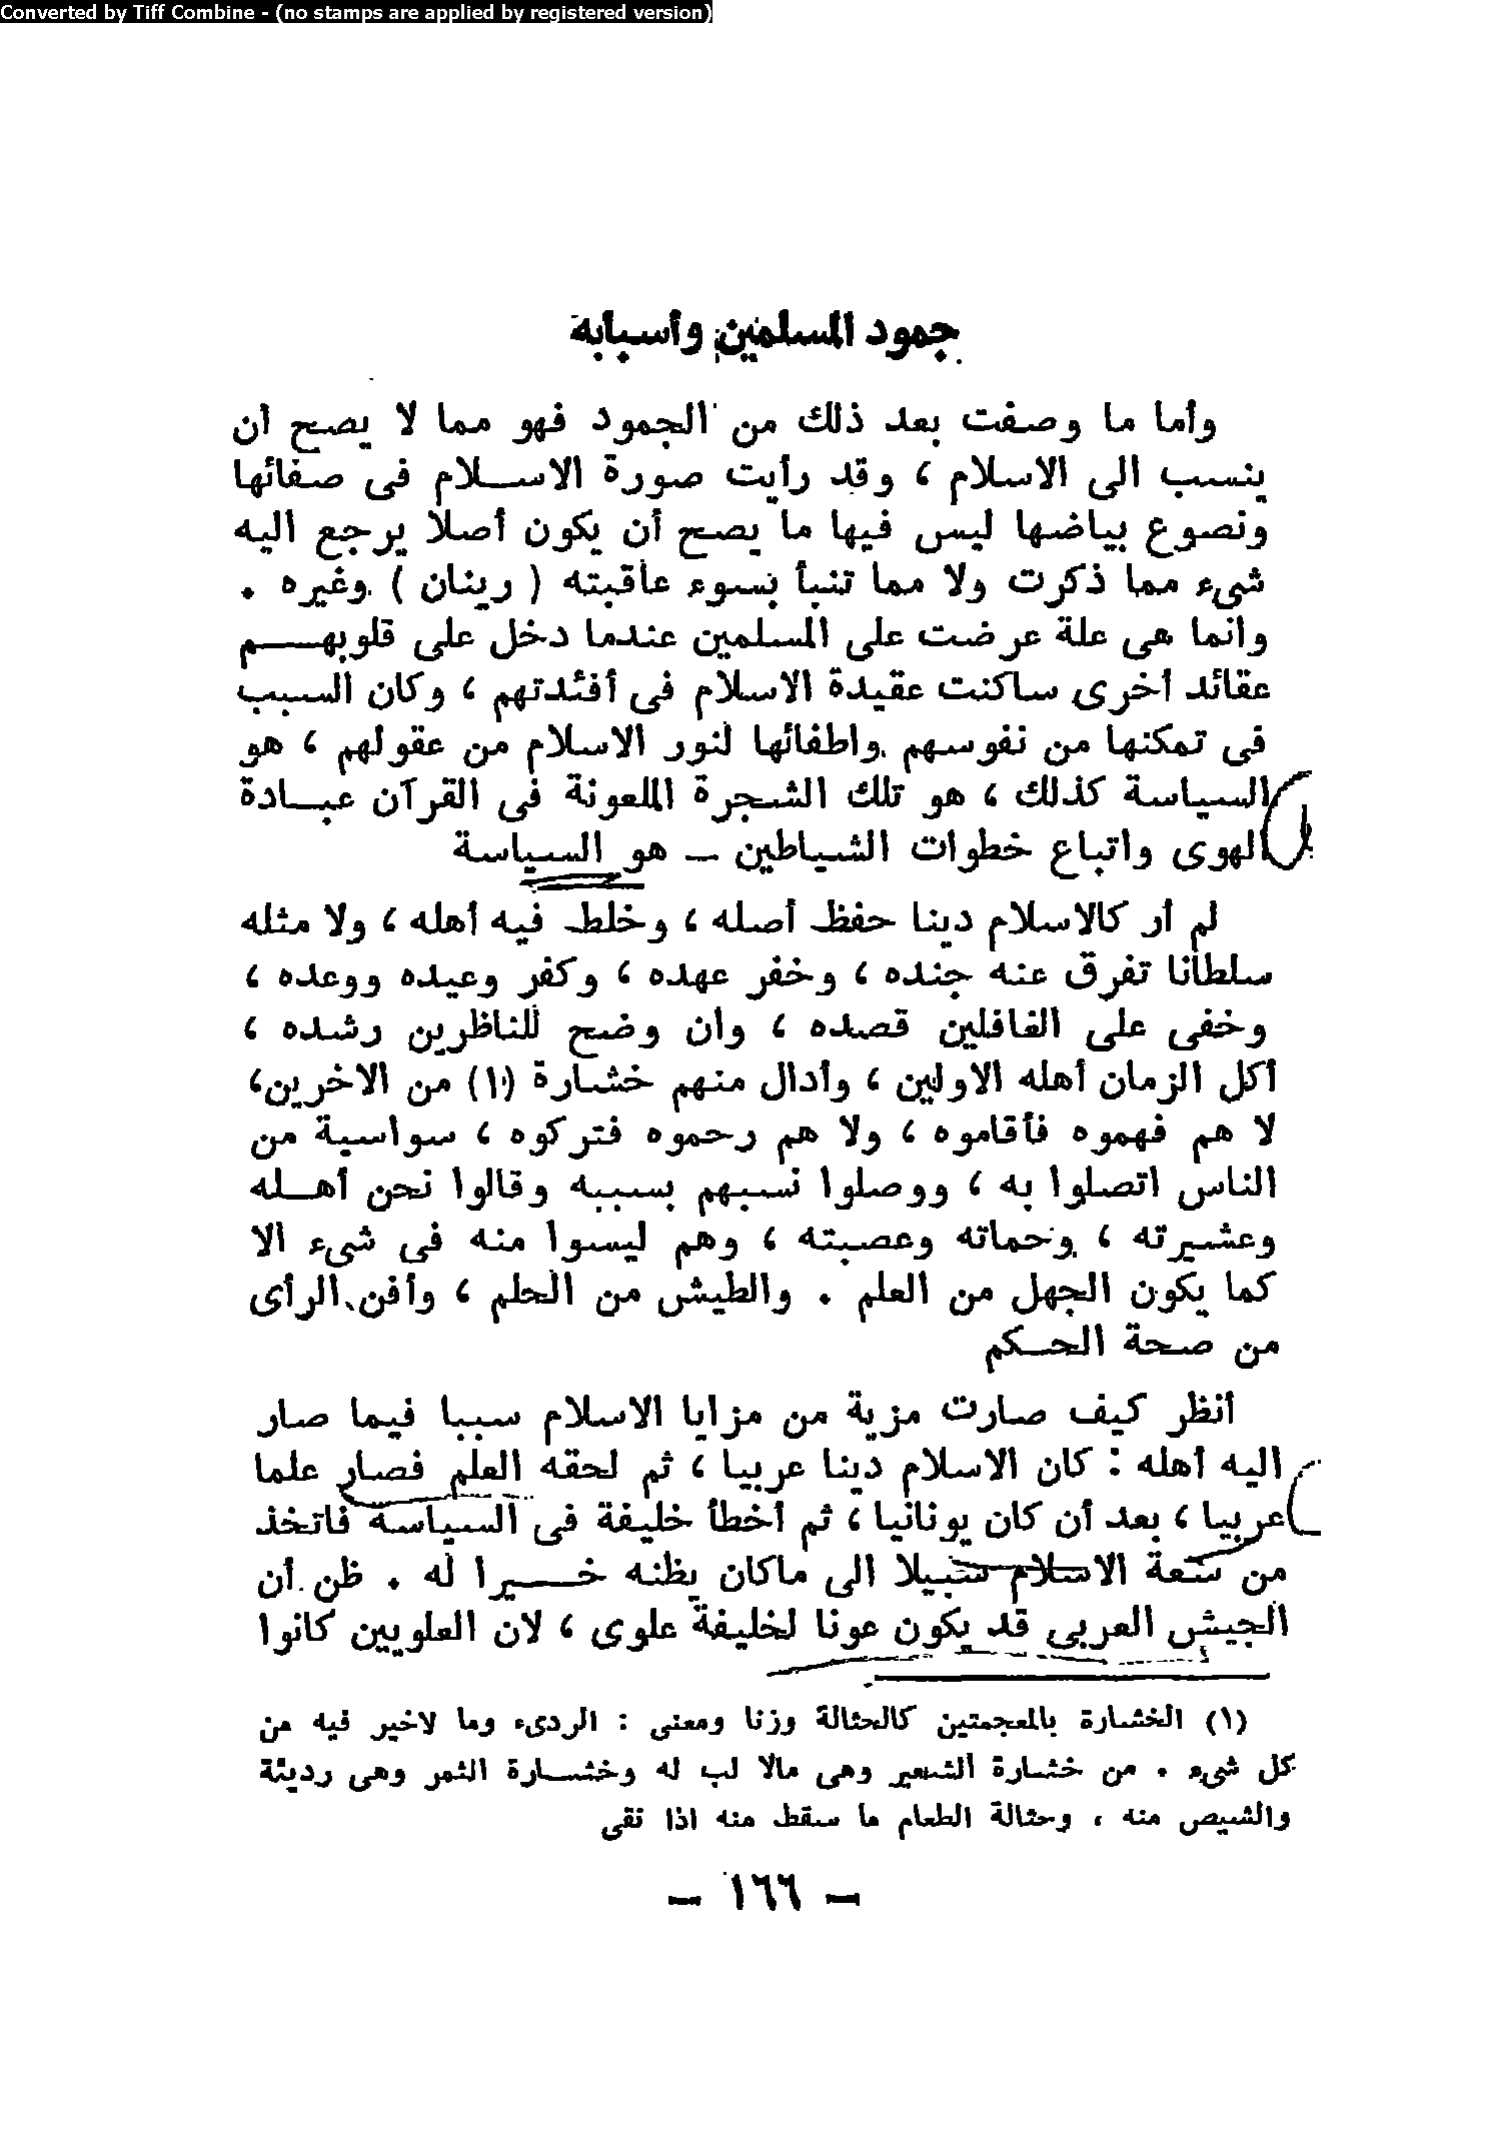 Converted by Tiff Combine - (no stamps are applied by registered version)
جمود المسلمين وأسبابه
وأما ما وصفت بعد ذلك من الجمود فهو مما لا يصح أن
ينسب الى الاسلام ، وقد رأيت صورة الاسلام فى صفائها
ونصوع بياضها ليس فيها ما يصح أن يكون أصلا يرجع اليه
شىء مما ذكرت ولا مما تنبأ بسوء عاقبته ( رينان ) وغيره .
وانما هى علة عرضت على المسلمين عندما دخل على قلوبهم
عقائد أخرى ساكنت عقيدة الاسلام فى أفئدتهم ، وكان السبب
فى تمكنها من نفوسهم واطفائها لنور الاسلام من عقولهم ، هو
السياسة كذلك ، هو تلك الشجرة الملعونة فى القرآن عبادة
الهوى واتباع خطوات الشياطين – هو السياسة
لم أر كالاسلام دينا حفظ أصله ، وخلط فيه أهله ، ولا مثله
سلطانا تفرق عنه جنده ، وخفر عهده ، وكفر وعيده ووعده ،
وخفى على الغافلين قصده ، وان وضح للناظرين رشده ،
أكل الزمان أهله الاولين ، وأدال منهم خشارة (١) من الاخرين،
لا هم فهموه فأقاموه ، ولا هم رحموه فتركوه ، سواسية من
الناس اتصلوا به ، ووصلوا نسبهم بسببه وقالوا نحن أهله
وعشيرته ، وحماته وعصبته ، وهم ليسوا منه فى شىء الا
كما يكون الجهل من العلم . والطيش من الحلم ، وأفن الرأى
من صحة الحكم
أنظر كيف صارت مزية من مزايا الاسلام سببا فيما صار
اليه أهله : كان الاسلام دينا عربيا ، ثم لحقه العلم فصار علما
عربيا ، بعد أن كان يونانيا ، ثم أخطأ خليفة فى السياسة فاتخذ
من سعة الاسلام سبيلا الى ماكان يظنه خيرا له . ظن أن
الجيش العربى قد يكون عونا لخليفة علوى ، لان العلويين كانوا
(١) الخشارة بالمعجمتين كالحثالة وزنا ومعنى : الردىء وما لاخير فيه من
كل شىء . من خشارة الشعير وهى مالا لب له وخشارة الثمر وهى رديئة
والشيص منه ، وحثالة الطعام ما سقط منه اذا نقى
– ١٦٦ –